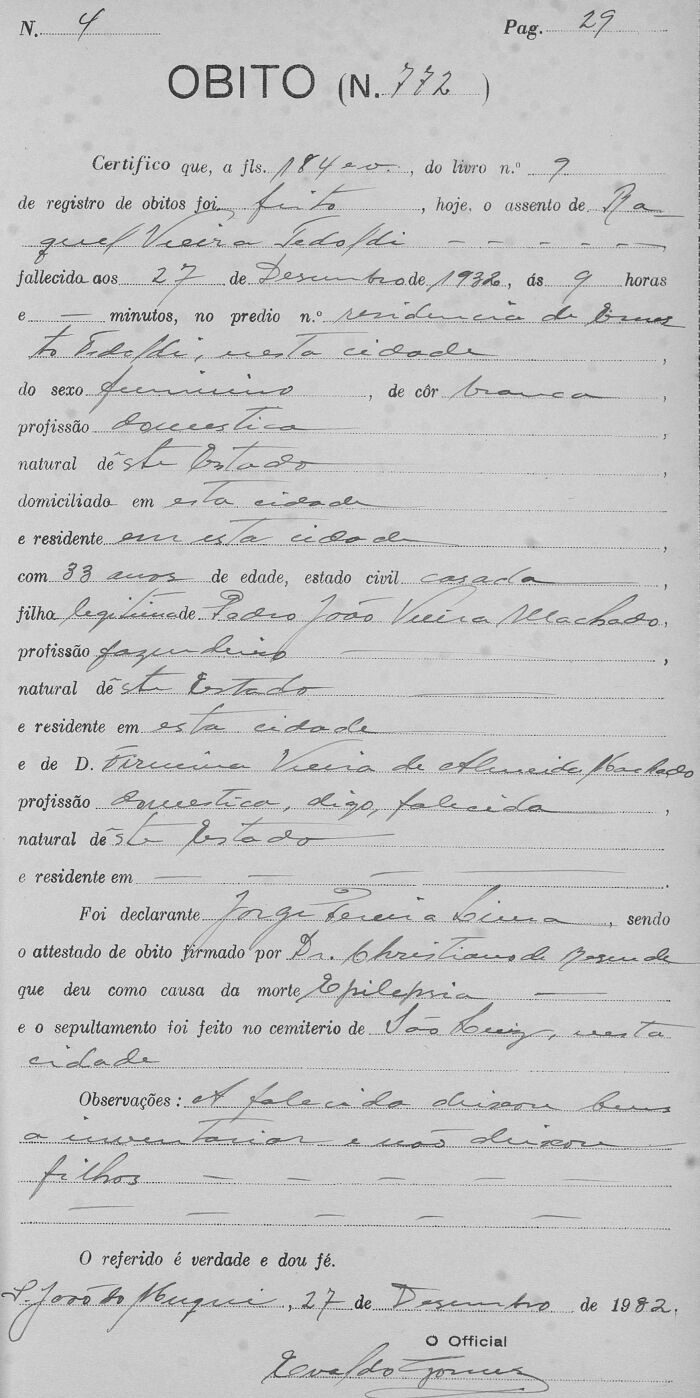 N. 4 Pag. 29
OBITO (N. 772)
Certifico que, a fls. 184 e v., do livro n.º 9
de registro de obitos foi feito, hoje, o assento de Ra-
quel Vieira Tedoldi — — — — —,
fallecida aos 27 de Desembro de 1932, ás 9 horas
e — minutos, no predio n.º residencia de Ernes
to Tedoldi, nesta cidade,
do sexo feminino, de côr branca,
profissão domestica,
natural dêste Estado,
domiciliada em esta cidade
e residente em esta cidade,
com 33 anos de edade, estado civil casada,
filha legitima de Pedro João Vieira Machado,
profissão fazendeiro —,
natural dêste Estado —
e residente em esta cidade
e de D. Firmina Vieira de Almeida Machado
profissão domestica, digo, falecida,
natural dêste Estado
e residente em — — — —.
Foi declarante Jorge Pereira Lima, sendo
o attestado de obito firmado por Dr. Christiano de Resende
que deu como causa da morte Epilepsia —
e o sepultamento foi feito no cemiterio de São Luiz, nesta
cidade
Observações: A falecida deixou bens
a inventariar e não deixou
filhos — — — — —
— — — — —
O referido é verdade e dou fé.
S. João do Muqui, 27 de Desembro de 1932.
O Official
Evaldo Gomes